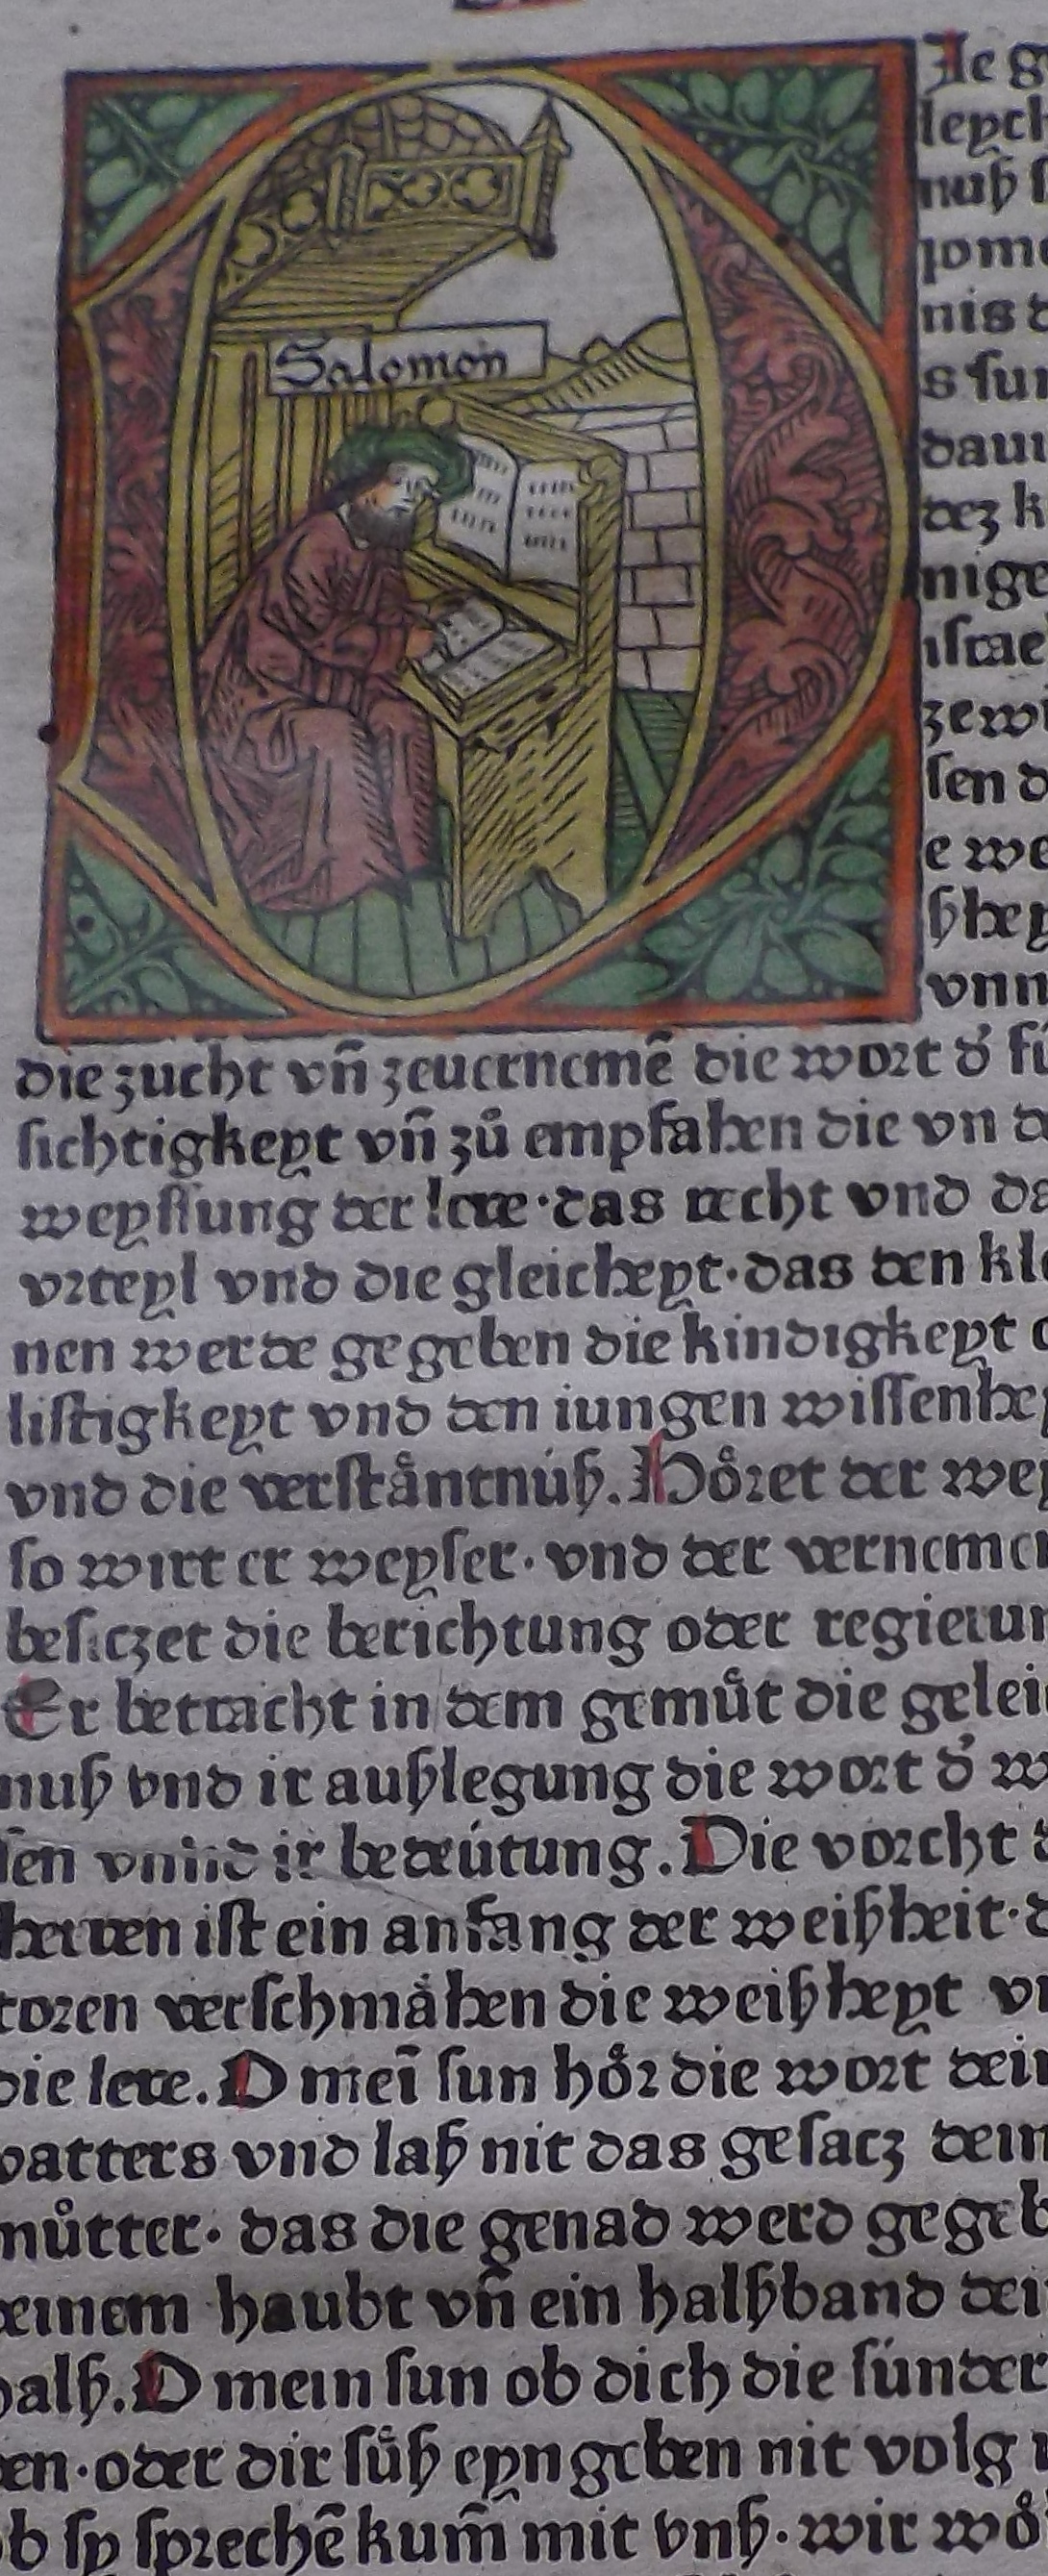 Salomon
Je ge
leych
nuß s
pome
nis d
s sun
daui
dez k
nige
israe
ze wi
sen d
e we
ßhey
vnn
die zucht vn̄ zeuernemē die wort d̕ fü
sichtigkeyt vn̄ zů empfahen die vn de
weyssung der lere·das recht vnd da
vrteyl vnd die gleicheyt·das den kle
nen werde gegeben die kindigkeyt o
listigkeyt vnd den iungen wissenhey
vnd die verståntnúß. Hoͤret der wey
so wirt er weyser·vnd der vernemen
besiczet die berichtung oder regierun
Er betracht in dem gemuͤt die gelei
nuß vnd ir außlegung die wort d̕ w
sen vnnd ir bedeútung. Die vorcht d
herren ist ein anfang der weißheit·d
toren verschmåhen die weißheyt vn
die lere. O mei̅ sun hoͤr die wort dein
vatters vnd laß nit das gesacz dein
můtter·das die genad werd gegeb
deinem haubt vn̄ ein halßband dei
halß. O mein sun ob dich die súnder
en·oder dir súͤß eyngeben nit volg
ob sy sprechē kum̄ mit vnß·wir woͤ